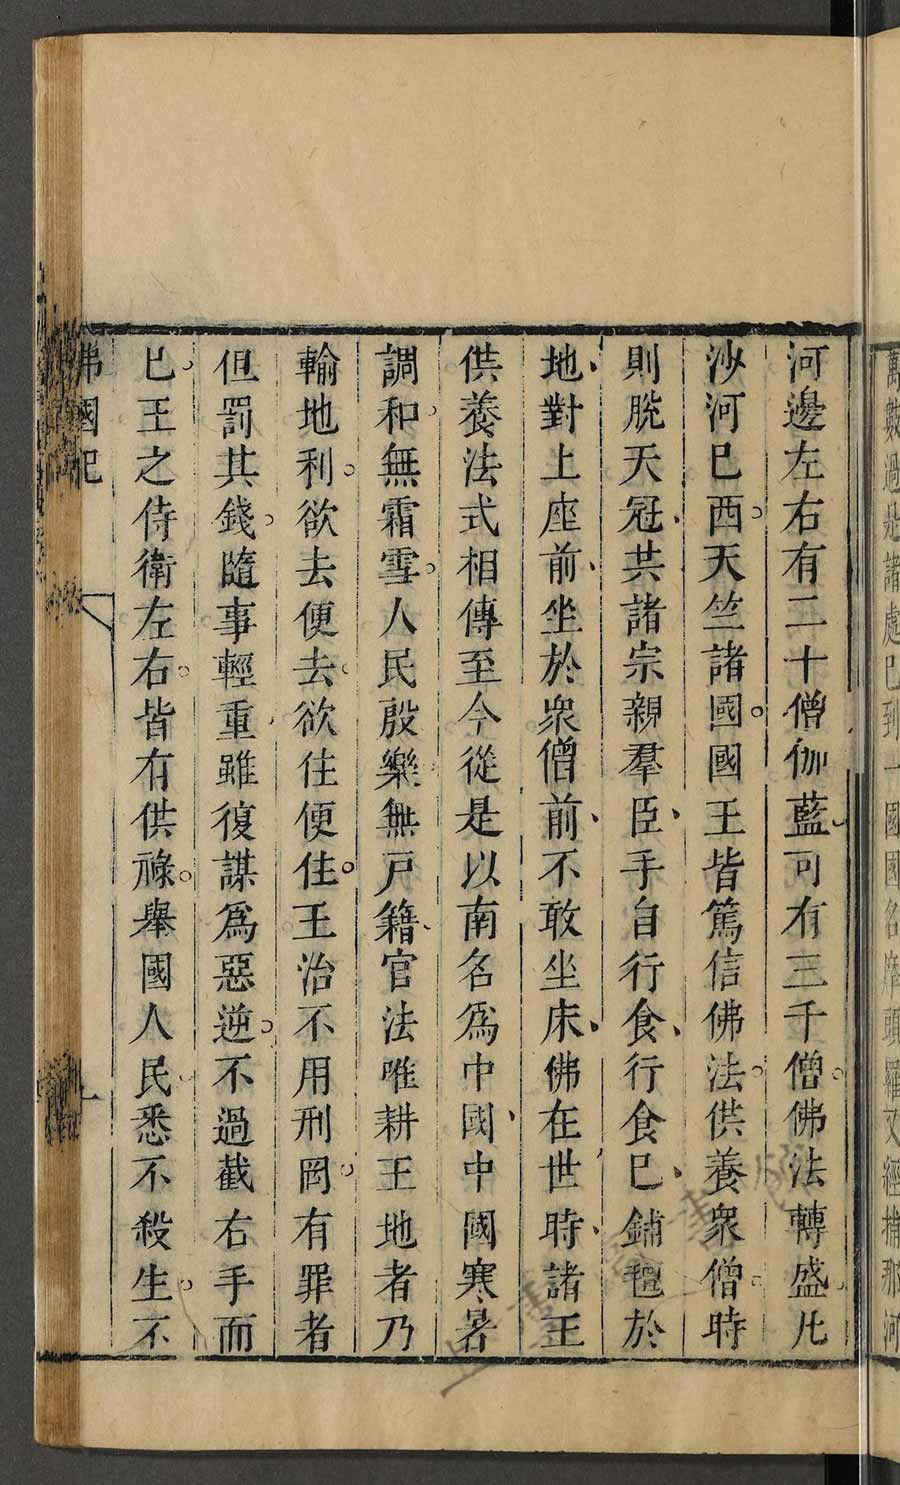 萬數過是諸處已到一國國名摩頭羅又經捕那河
河邊左右有二十僧伽藍可有三千僧佛法轉盛凡
沙河已西天竺諸國國王皆篤信佛法供養衆僧時
則脫天冠共諸宗親羣臣手自行食行食已鋪氊於
地對上座前坐於衆僧前不敢坐床佛在世時諸王
供養法式相傳至今從是以南名爲中國中國寒暑
調和無霜雪人民殷樂無戶籍官法唯耕王地者乃
輸地利欲去便去欲住便住王治不用刑罔有罪者
但罰其錢隨事輕重雖復謀爲惡逆不過截右手而
已王之侍衛左右皆有供祿舉國人民悉不殺生不
佛國記